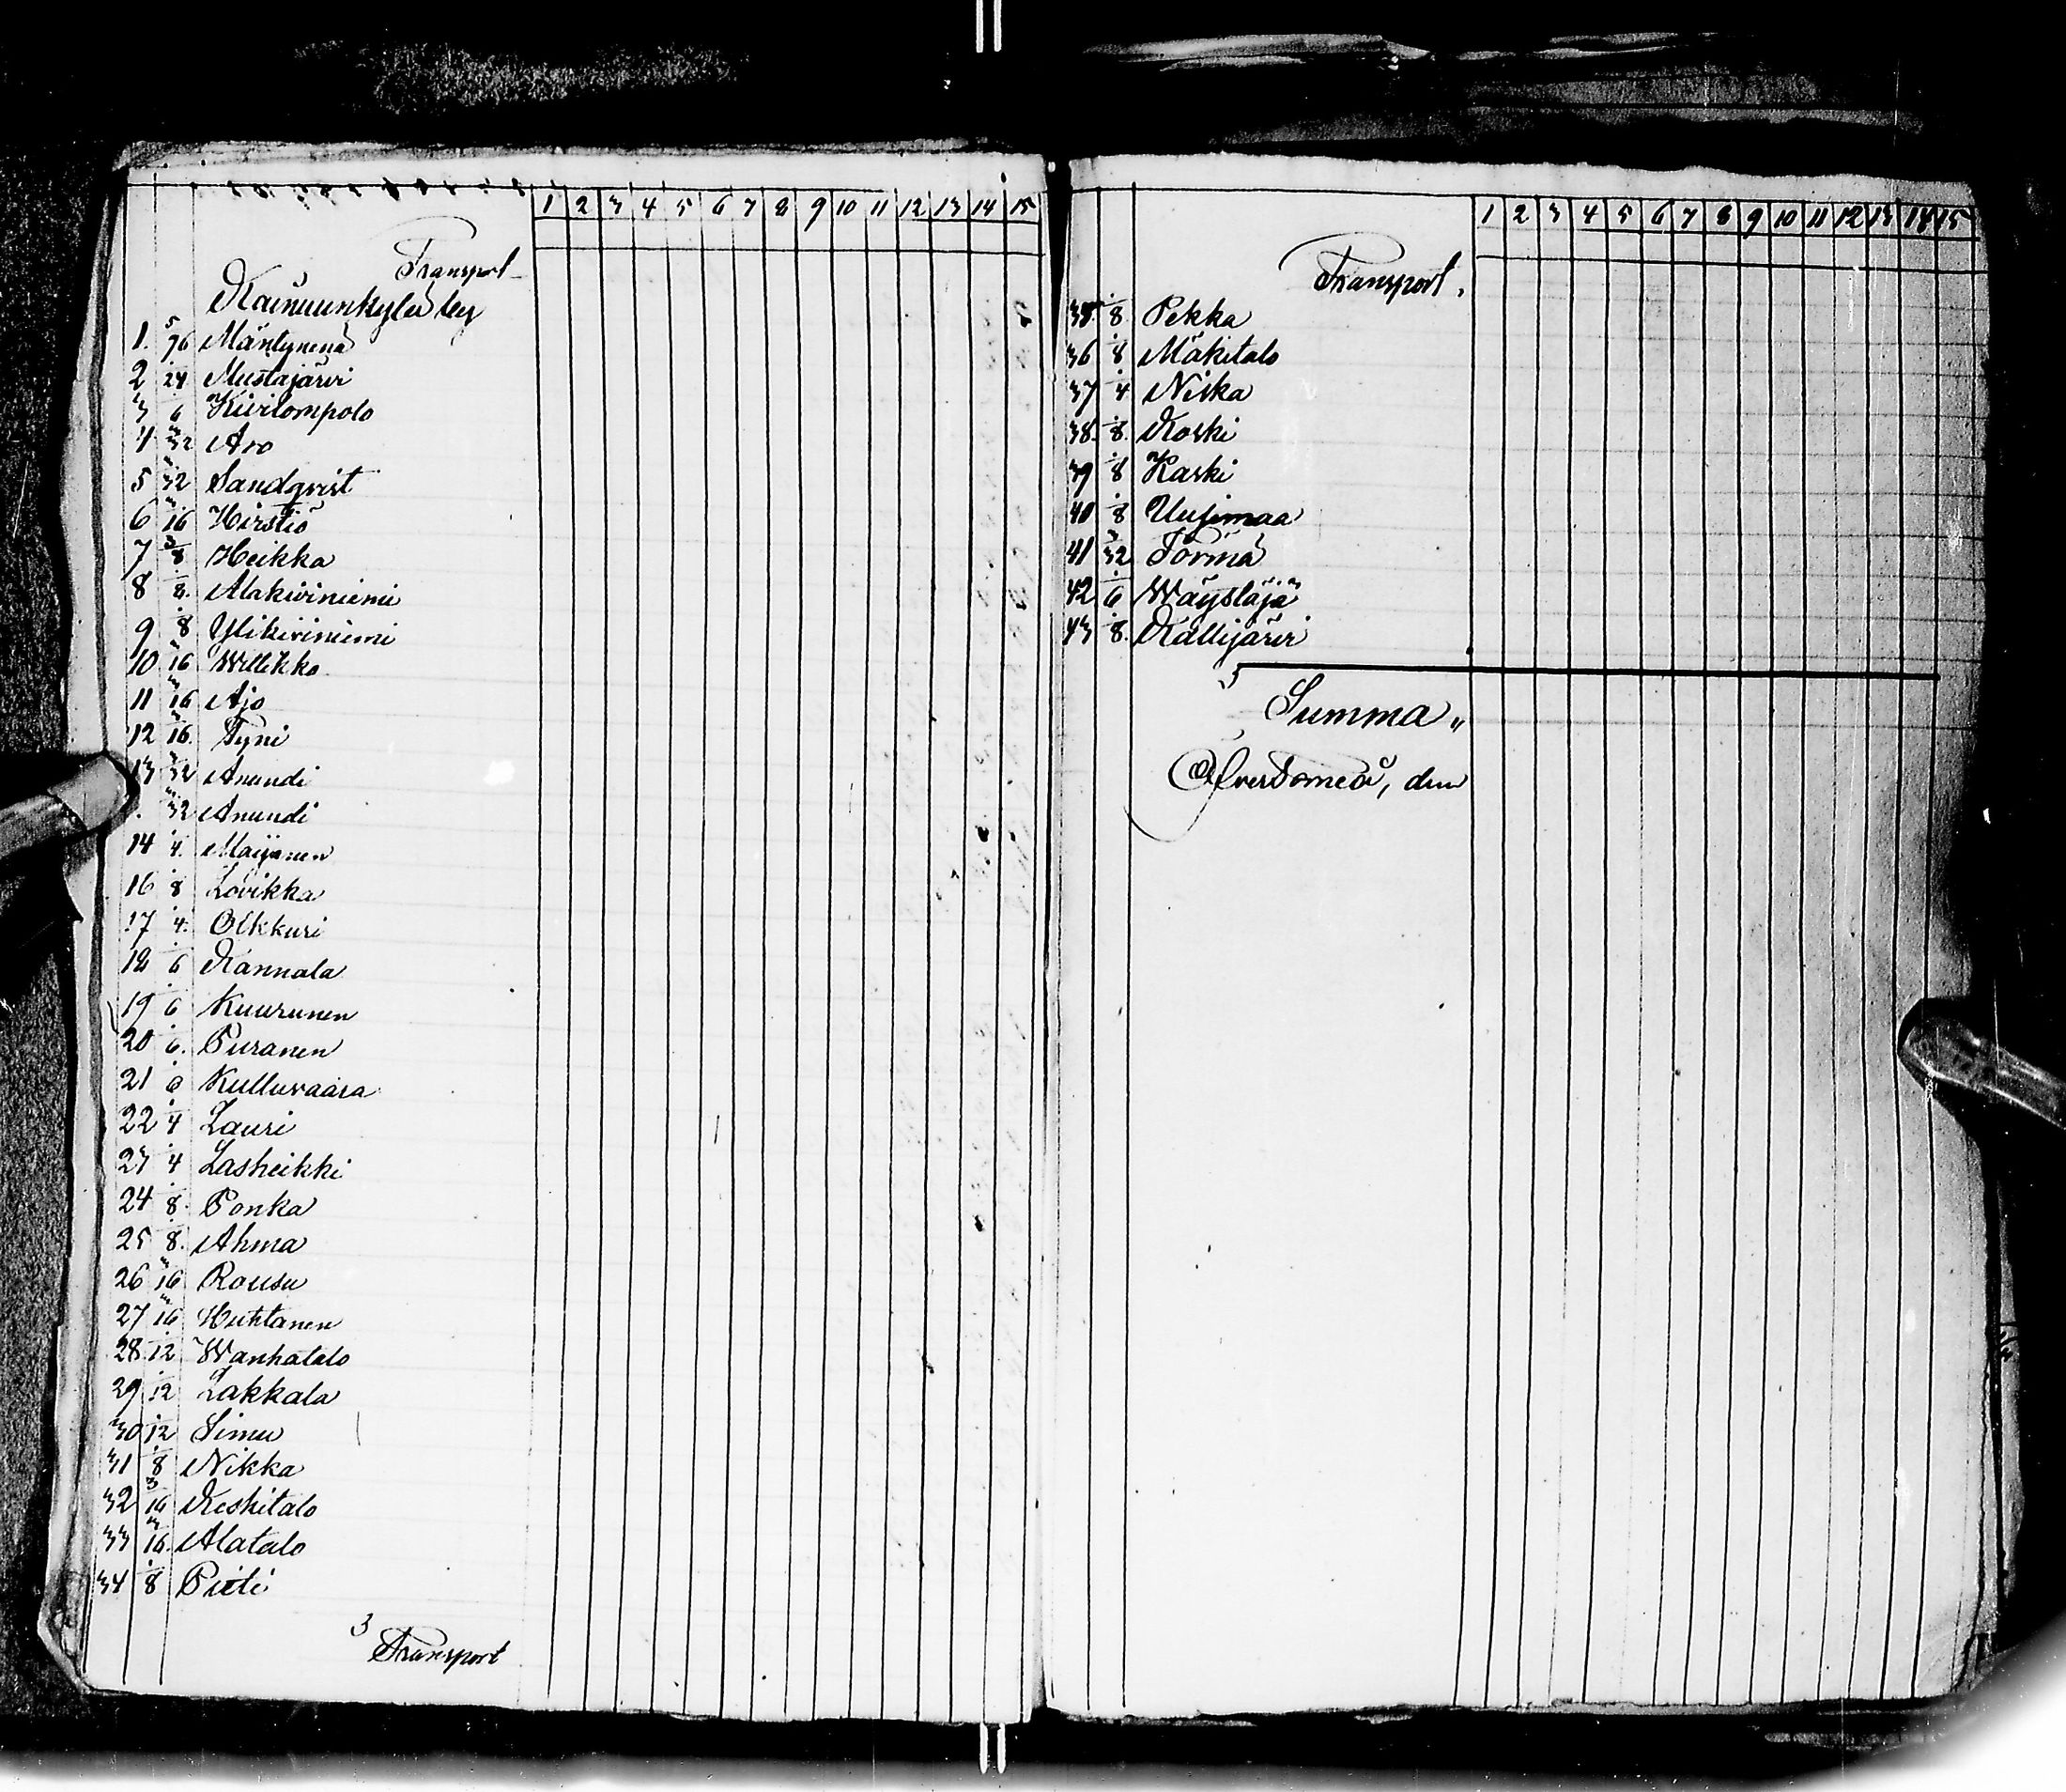 1 2 3 4 5 6 7 8 9 10 11 12 13 14 15
Transport
Kainuunkylä by
1. 5/76 Mäntynenä
2 1/24 Mustajärvi
3 1/6 Kivilompolo
4 3/32 Aro
5 3/32 Sandqvist
6 3/16 Hirstiö
7 3/8 Heikka
8 1/8. Alakiviniemi
9 1/8 Ylikiviniemi
10 3/16 Willikka
11 3/16 Ajo
12 3/16. Tyni
13 3/32 Anundi
3/32 Anundi
14 1/4. Maijanen
16 1/8 Lovikka
17 1/4. Olkkuri
18 1/6 Kannala
19 1/6 Kuurunen
20 1/6. Puranen
21 1/6 Kulluvaara
22 1/4 Lauri
23 1/4 Lasheikki
24 1/8. Ponka
25 1/8. Ahma
26 3/16 Rousu
27 3/16 Huhtanen
28. 1/12 Wanhatalo
29 1/12 Lakkala
30 1/12 Simu
31 1/8 Nikka
32 3/16 Keskitalo
33 3/16. Alatalo
34 1/8 Pieti
3
Transport
1 2 3 4 5 6 7 8 9 10 11 12 13 14 15
Transport.
35 1/8. Pekka
36 1/8 Mäkitalo
37 1/4 Niska
38. 1/8. Koski
39 1/8 Kaski
40 1/8 Uusimaa
41 3/32 Törmä
42 1/6 Wäystäjä
43 1/8. Kallijärvi
Summa„
ÖfverTorneå, den